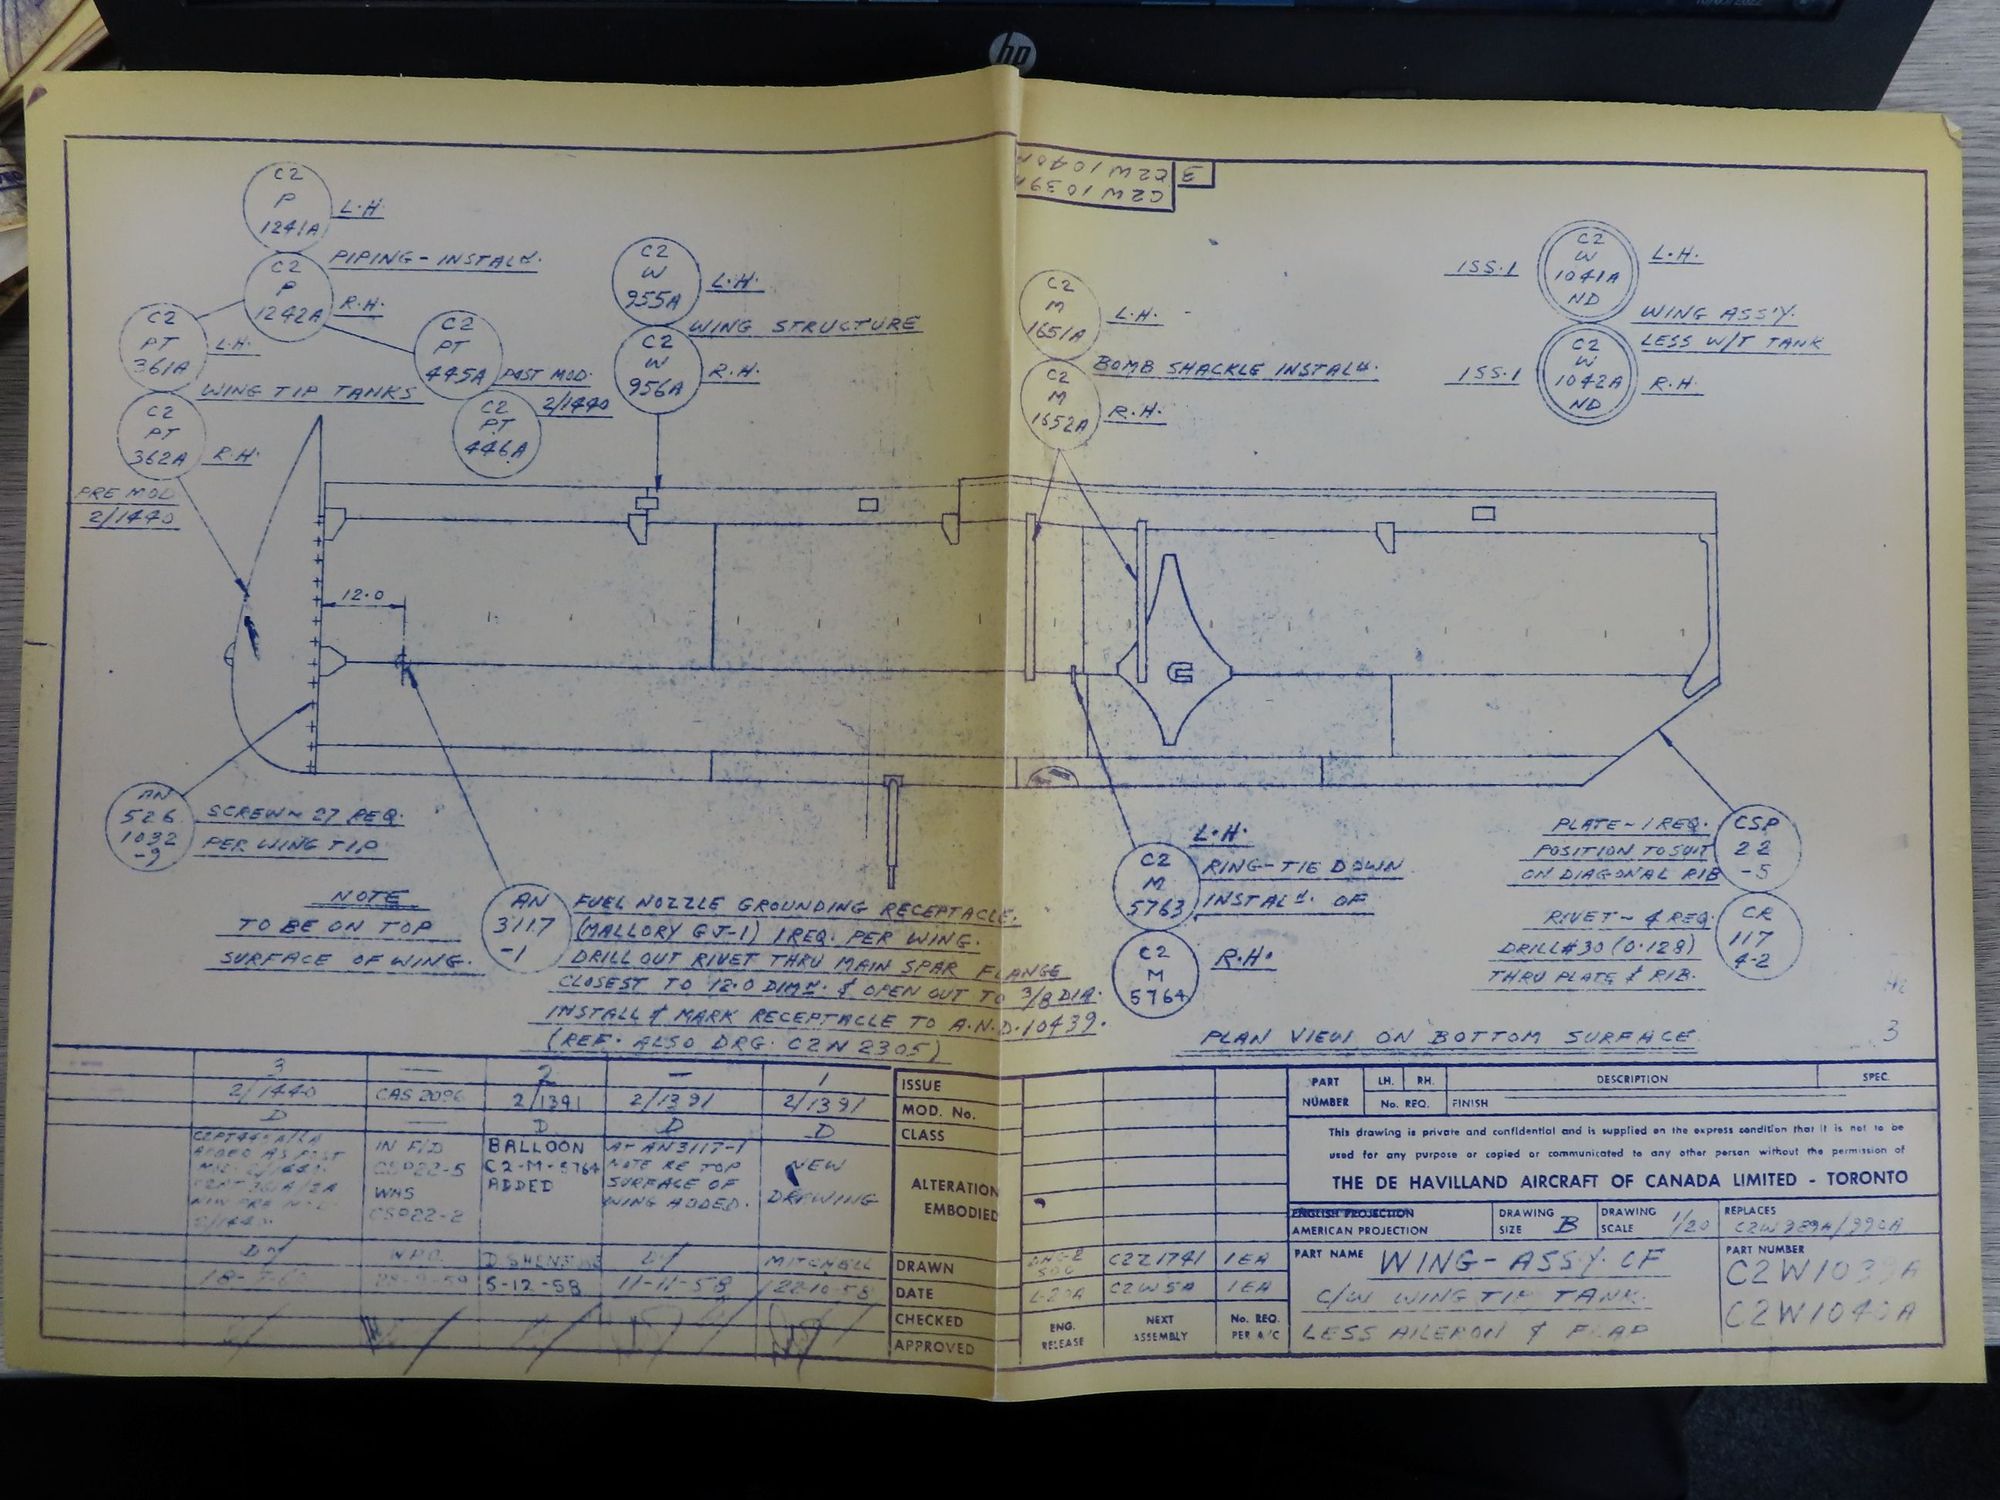 hp
C2W1040A
C2W1039A
3
C2
P
1241A
L.H.
PIPING-INSTALN.
C2
P
1242A
R.H.
C2
PT
361A
L.H.
WING TIP TANKS
C2
PT
362A
R.H.
PRE MOD
2/1440
C2
PT
445A
POST MOD.
2/1440
C2
PT
446A
C2
W
955A
L.H.
WING STRUCTURE
C2
W
956A
R.H.
C2
M
1651A
L.H.
BOMB SHACKLE INSTALN.
C2
M
1652A
R.H.
ISS.1
C2
W
1041A
ND
L.H.
WING ASS'Y.
LESS W/T TANK
ISS.1
C2
W
1042A
ND
R.H.
12.0
AN
526
1032
-9
SCREW~27 REQ.
PER WING TIP
NOTE
TO BE ON TOP
SURFACE OF WING.
AN
3117
-1
FUEL NOZZLE GROUNDING RECEPTACLE.
(MALLORY GJ-1) 1 REQ. PER WING.
DRILL OUT RIVET THRU MAIN SPAR FLANGE
CLOSEST TO 12.0 DIMN. & OPEN OUT TO 3/8 DIA.
INSTALL & MARK RECEPTACLE TO A.N.D.10439.
(REF. ALSO DRG. C2N2305)
C2
M
5763
L.H.
RING-TIE DOWN
INSTALN. OF
C2
M
5764
R.H.
PLATE~1 REQ.
POSITION TO SUIT
ON DIAGONAL RIB
CSP
22
-5
RIVET~4 REQ.
DRILL#30 (0.128)
THRU PLATE & RIB.
CR
117
4-2
PLAN VIEW ON BOTTOM SURFACE
3
3 — 2 — 1 ISSUE
2/1440 CAS 2096 2/1391 2/1391 2/1391 MOD. No.
D — D D D CLASS
ADDED AS POST
IN F/D
CSP22-5
WAS
CSP22-2
BALLOON
C2-M-5764
ADDED
AN3117-1
NOTE RE TOP
SURFACE OF
WING ADDED.
NEW
DRAWING
ALTERATION
EMBODIED
MITCHELL DRAWN
5-12-58 11-11-58 22-10-58 DATE
CHECKED
APPROVED
C2Z1741 1EA
L-20A C2W5A 1EA
ENG.
RELEASE
NEXT
ASSEMBLY
No. REQ.
PER A/C
PART
NUMBER
LH. RH.
No. REQ.
DESCRIPTION
SPEC.
FINISH
This drawing is private and confidential and is supplied on the express condition that it is not to be
used for any purpose or copied or communicated to any other person without the permission of
THE DE HAVILLAND AIRCRAFT OF CANADA LIMITED - TORONTO
ENGLISH PROJECTION
AMERICAN PROJECTION
DRAWING
SIZE B
DRAWING
SCALE 1/20
REPLACES
C2W989A/990A
PART NAME WING-ASS'Y. OF
C/W WING TIP TANK.
LESS AILERON & FLAP
PART NUMBER
C2W1039A
C2W1040A